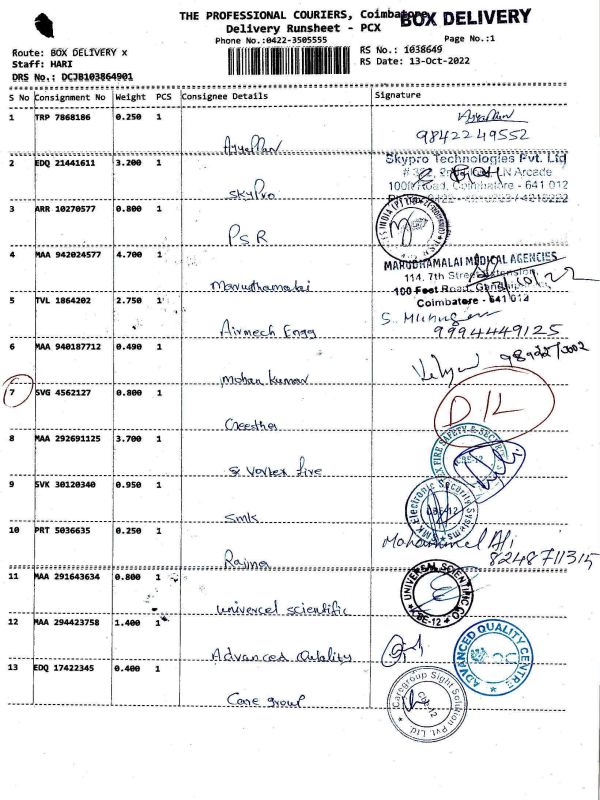 THE PROFESSIONAL COURIERS, Coimbatore
BOX DELIVERY
Delivery Runsheet - PCX
Phone No.:0422-3505555
Page No.:1
Route: BOX DELIVERY x
RS No.: 1038649
Staff: HARI
RS Date: 13-Oct-2022
DRS No.: DCJB103864901
S No Consignment No Weight PCS Consignee Details Signature
1 TRP 7868186 0.250 1
9842249552
2 EDQ 21441611 3.200 1 Skypro
Skypro Technologies Pvt. Ltd
LN Arcade
100ft Road, Coimbatore - 641 012
3 ARR 10270577 0.800 1 P.S.R
4 MAA 942024577 4.700 1 Marudhamalai
MARUDHAMALAI MEDICAL AGENCIES
114, 7th Street Extension,
100 Feet Road,
Coimbatore - 641 012
5 TVL 1864202 2.750 1 Airmech Engg
9994449125
6 MAA 940187712 0.490 1 Mohan Kumar
7 SVG 4562127 0.800 1
D/L
8 MAA 292691125 3.700 1 Vortex fire
FIRE SAFETY &
9 SVK 30120340 0.950 1 Smk
SMK Electronic Security Systems
10 PRT 5036635 0.250 1
Mohammel Ali
8248711315
11 MAA 291643634 0.800 1 Univercel scientific
UNIVERSAL SCIENTIFIC CO
CBE-12
12 MAA 294423758 1.400 1 Advanced Quality
ADVANCED QUALITY CENTRE
AQC
13 EDQ 17422345 0.400 1 Care group
Caregroup Sight Solution Pvt. Ltd.
CBE-12